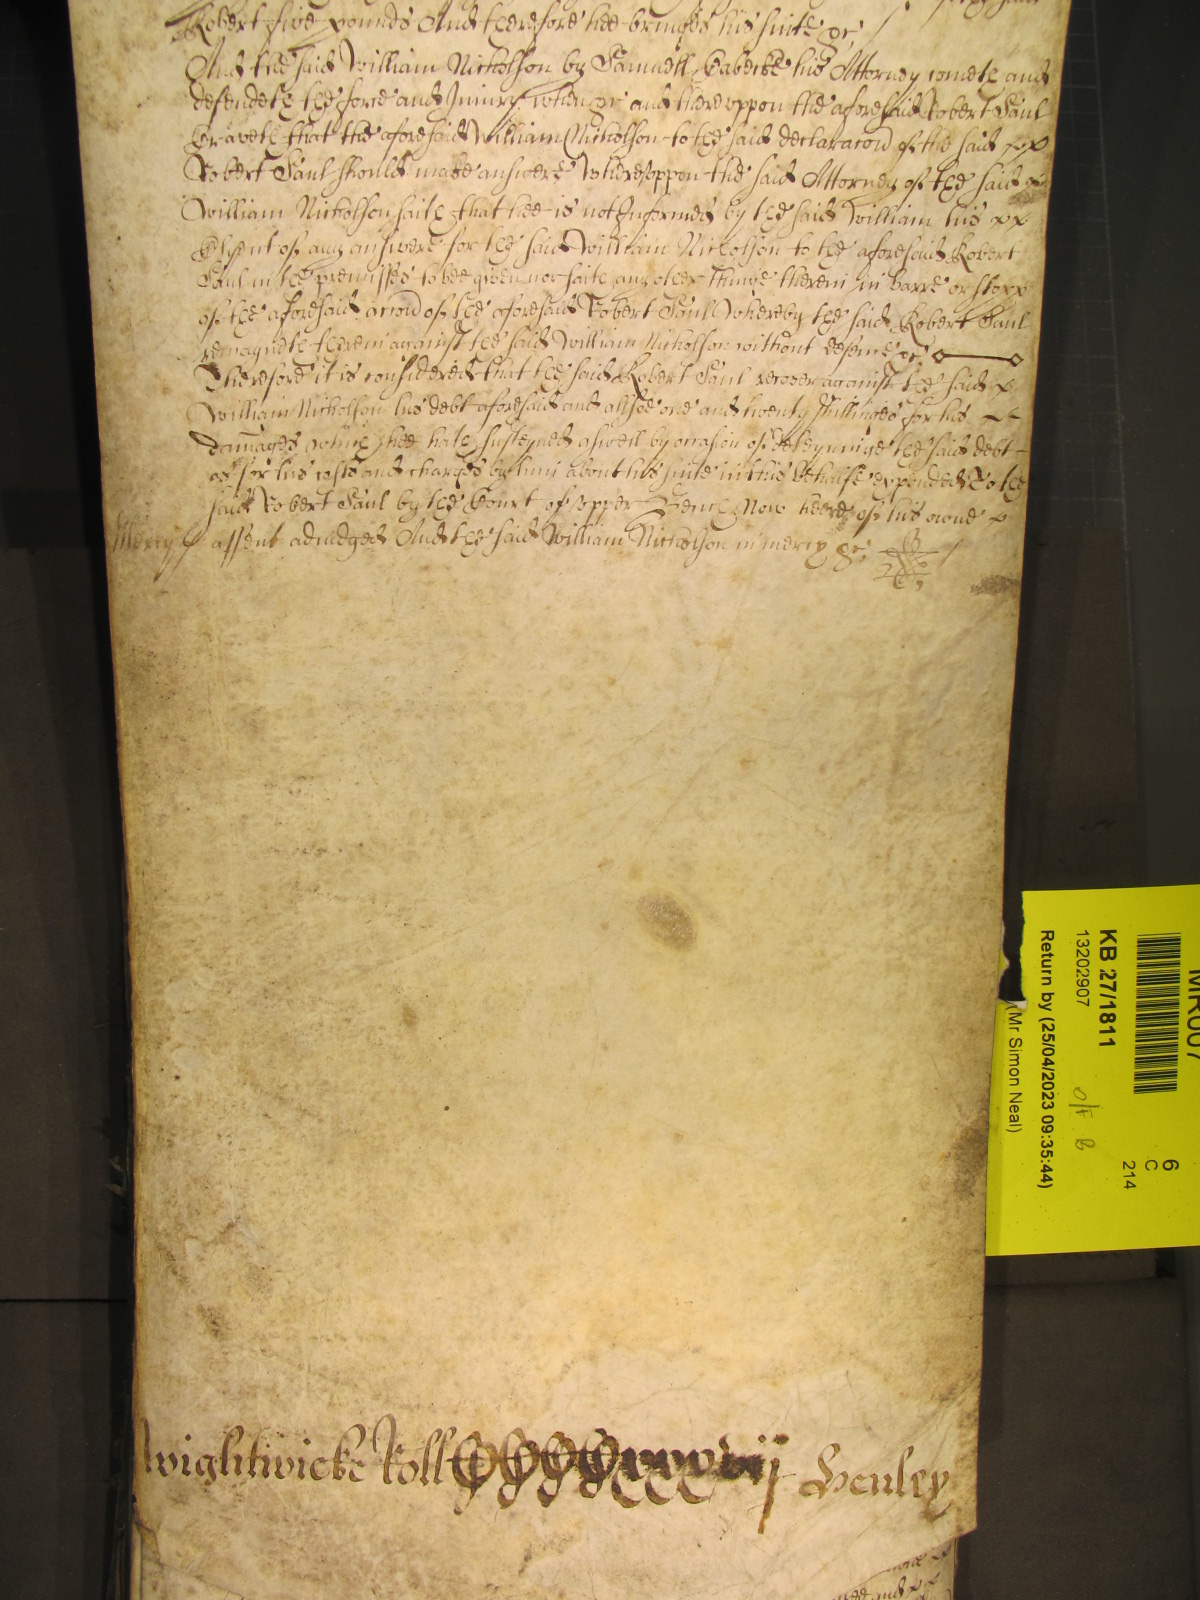 Robert five pounds And therefore hee bringes his suite &c
And the said William Nicholson by Samuell his Attorney cometh and
defendeth the force and Iniury when &c and thereuppon the aforesaid Robert Saul
Craveth that the aforesaid William Nicholson to the said declaracon of the said
Robert Saul should make answere Whereuppon the said Attorney of the said
William Nicholson saith that hee is not Informed by the said William his
Clyent of any answere for the said William Nicholson to the aforesaid Robert
Saul in the premisses to bee given nor saith any other thinge therein in barre or stopp
of the aforesaid accon of the aforesaid Robert Saul Whereby the said Robert Saul
remayneth therein against the said William Nicholson without defence &c
Therefore it is considered that the said Robert Saul recover against the said
William Nicholson his debt aforesaid and allsoe one and twenty shillinges for his
damages which hee hath susteyned aswell by occasion of deteyninge the said debt
as for his costs and charges by him about his suite in this behalfe expended To the
said Robert Saul by the Court of Upper Bench Now heere of his owne
Mercy assent adiudged And the said William Nicholson in mercy &c
Wightwicke Roll Henley
KB 27/1811
13202907
Return by (25/04/2023 09:35:44)
(Mr Simon Neal)
6
C
214
O/F B